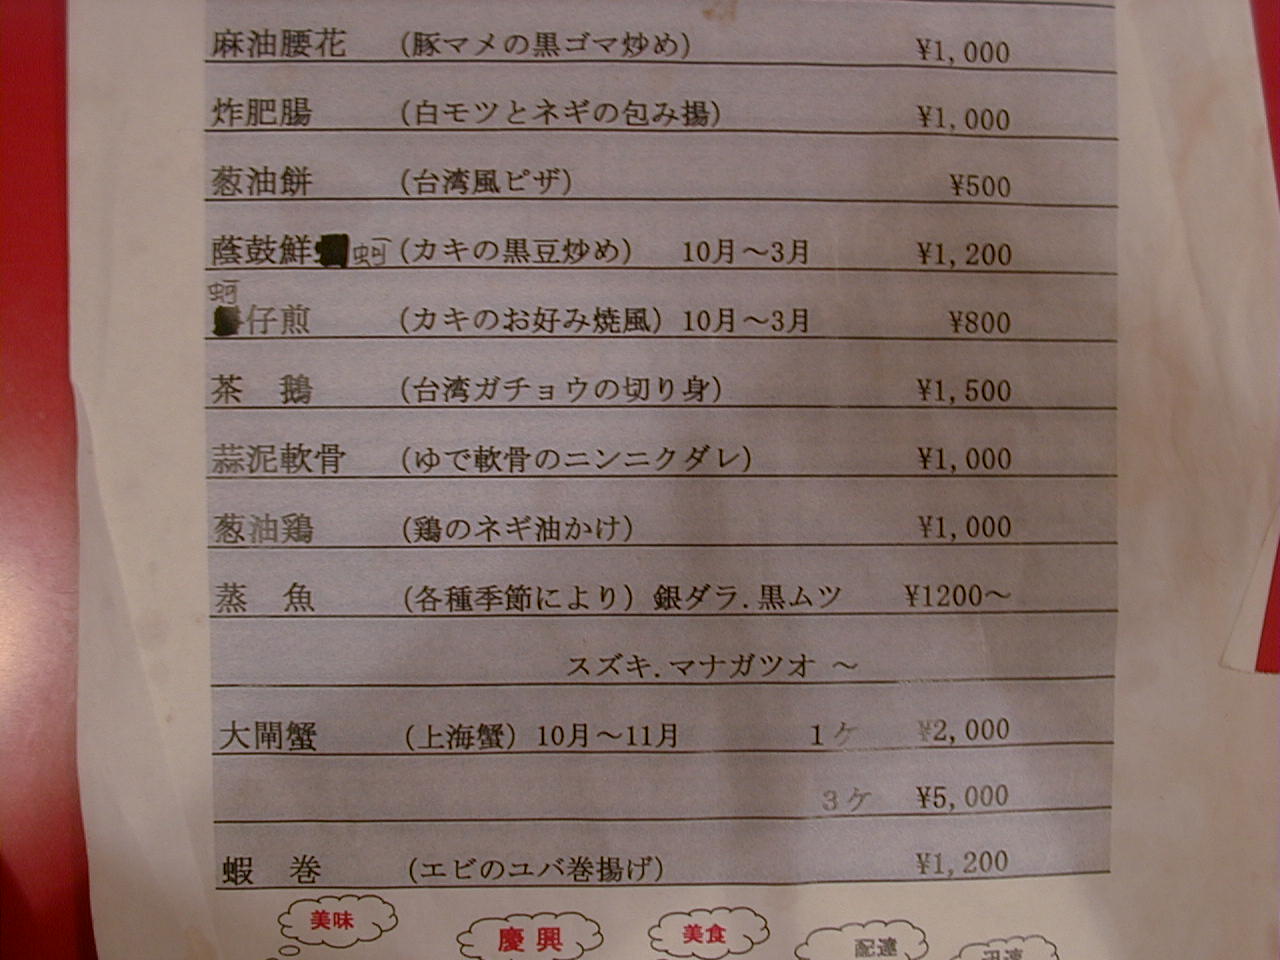 麻油腰花 (豚マメの黒ゴマ炒め) ¥1,000
炸肥腸 (白モツとネギの包み揚) ¥1,000
葱油餅 (台湾風ピザ) ¥500
蔭鼓鮮蚵 (カキの黒豆炒め) 10月～3月 ¥1,200
蚵仔煎 (カキのお好み焼風) 10月～3月 ¥800
茶 鵝 (台湾ガチョウの切り身) ¥1,500
蒜泥軟骨 (ゆで軟骨のニンニクダレ) ¥1,000
葱油鶏 (鶏のネギ油かけ) ¥1,000
蒸 魚 (各種季節により) 銀ダラ.黒ムツ ¥1200～
スズキ.マナガツオ ～
大閘蟹 (上海蟹) 10月～11月 1ケ ¥2,000
3ケ ¥5,000
蝦 巻 (エビのユバ巻揚げ) ¥1,200
美味 慶興 美食 配達 迅速